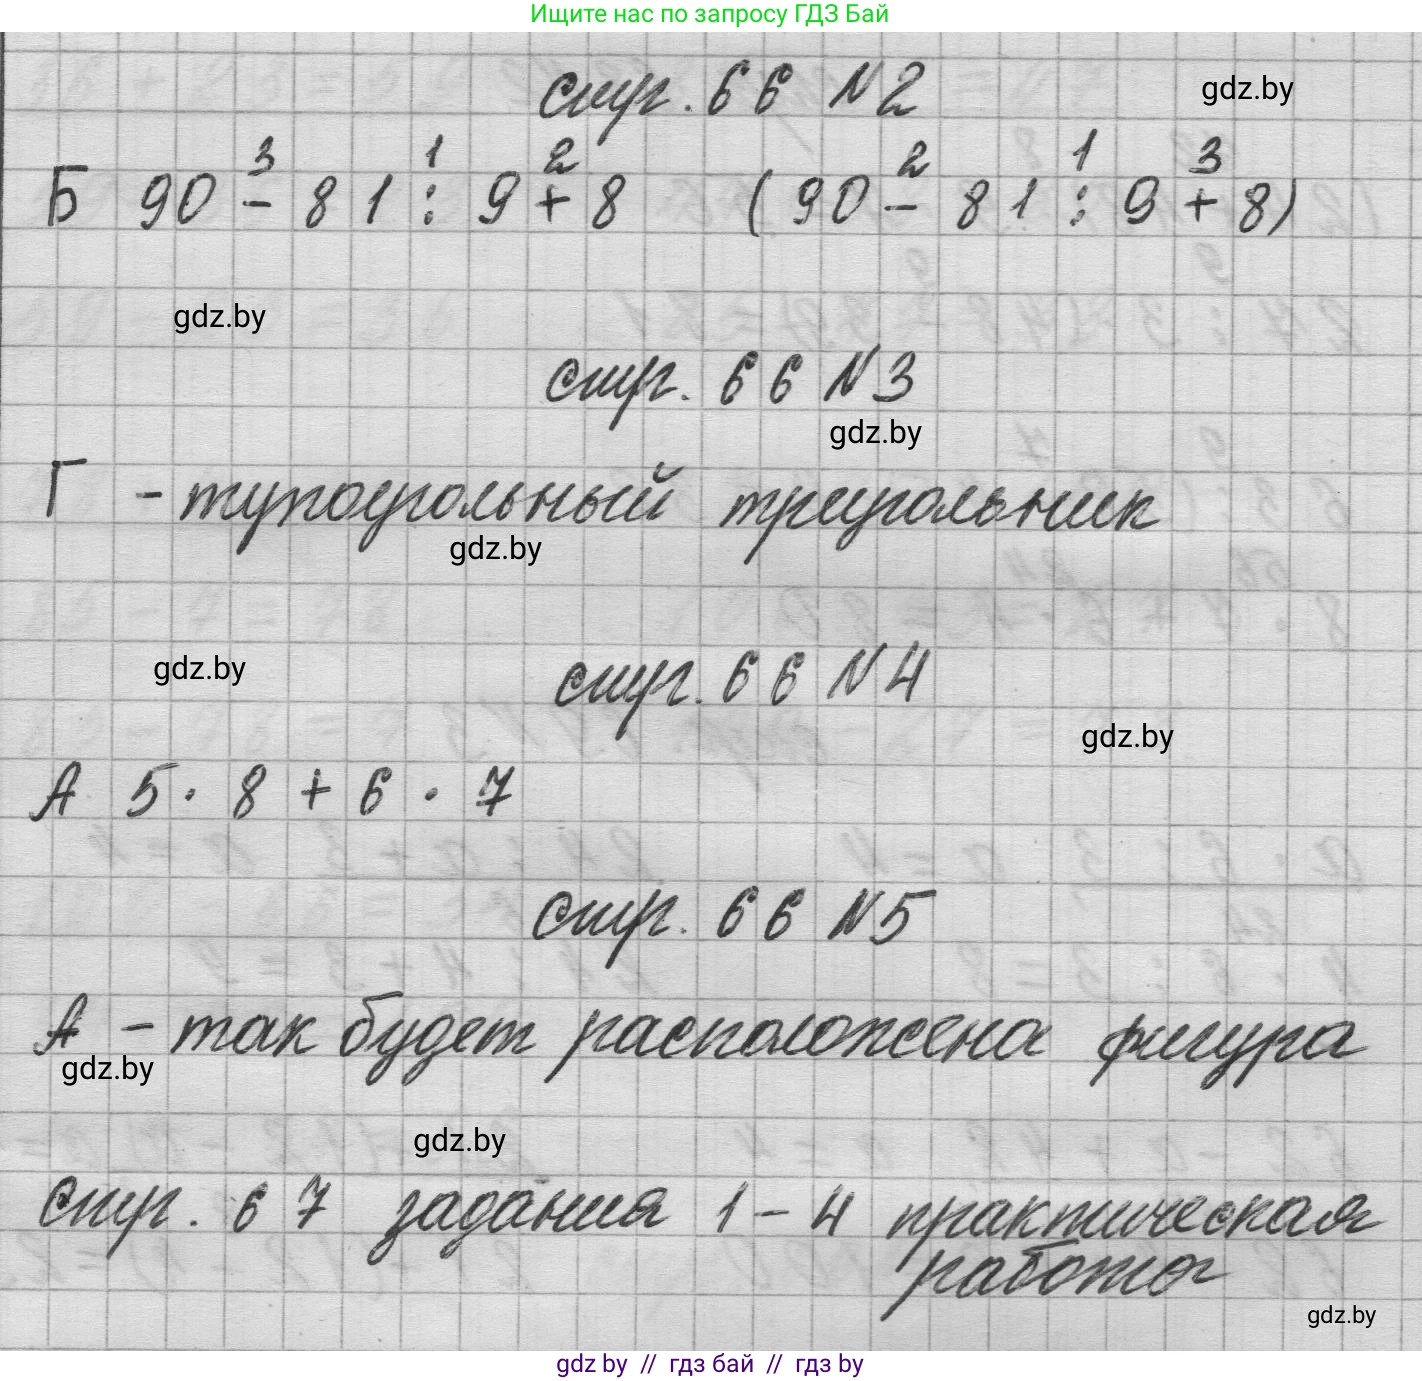 Ищите нас по запросу ГДЗ Бай
стр. 66 N2
gdz.by
3 1 2 2 1 3
Б 90 - 81 : 9 + 8 (90 - 81 : 9 + 8)
gdz.by
стр. 66 N3
gdz.by
Г - тупоугольный треугольник
gdz.by
gdz.by
стр. 66 N4
gdz.by
А 5 · 8 + 6 · 7
стр. 66 N5
А - так будет расположена фигура
gdz.by
gdz.by
стр. 67 задания 1 - 4 практическая
работа
gdz.by
gdz by // гдз бай // гдз by